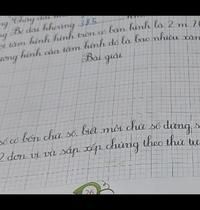 ng Bé dài khoảng 385
ột tấm hình hình tròn có bán kính là 2 m.
ương hình của tấm hình đó là bao nhiêu
Bài giải
số có bốn chữ số, biết mỗi chữ số đứng s
2 đơn vị và sắp xếp chúng theo thứ tự
26